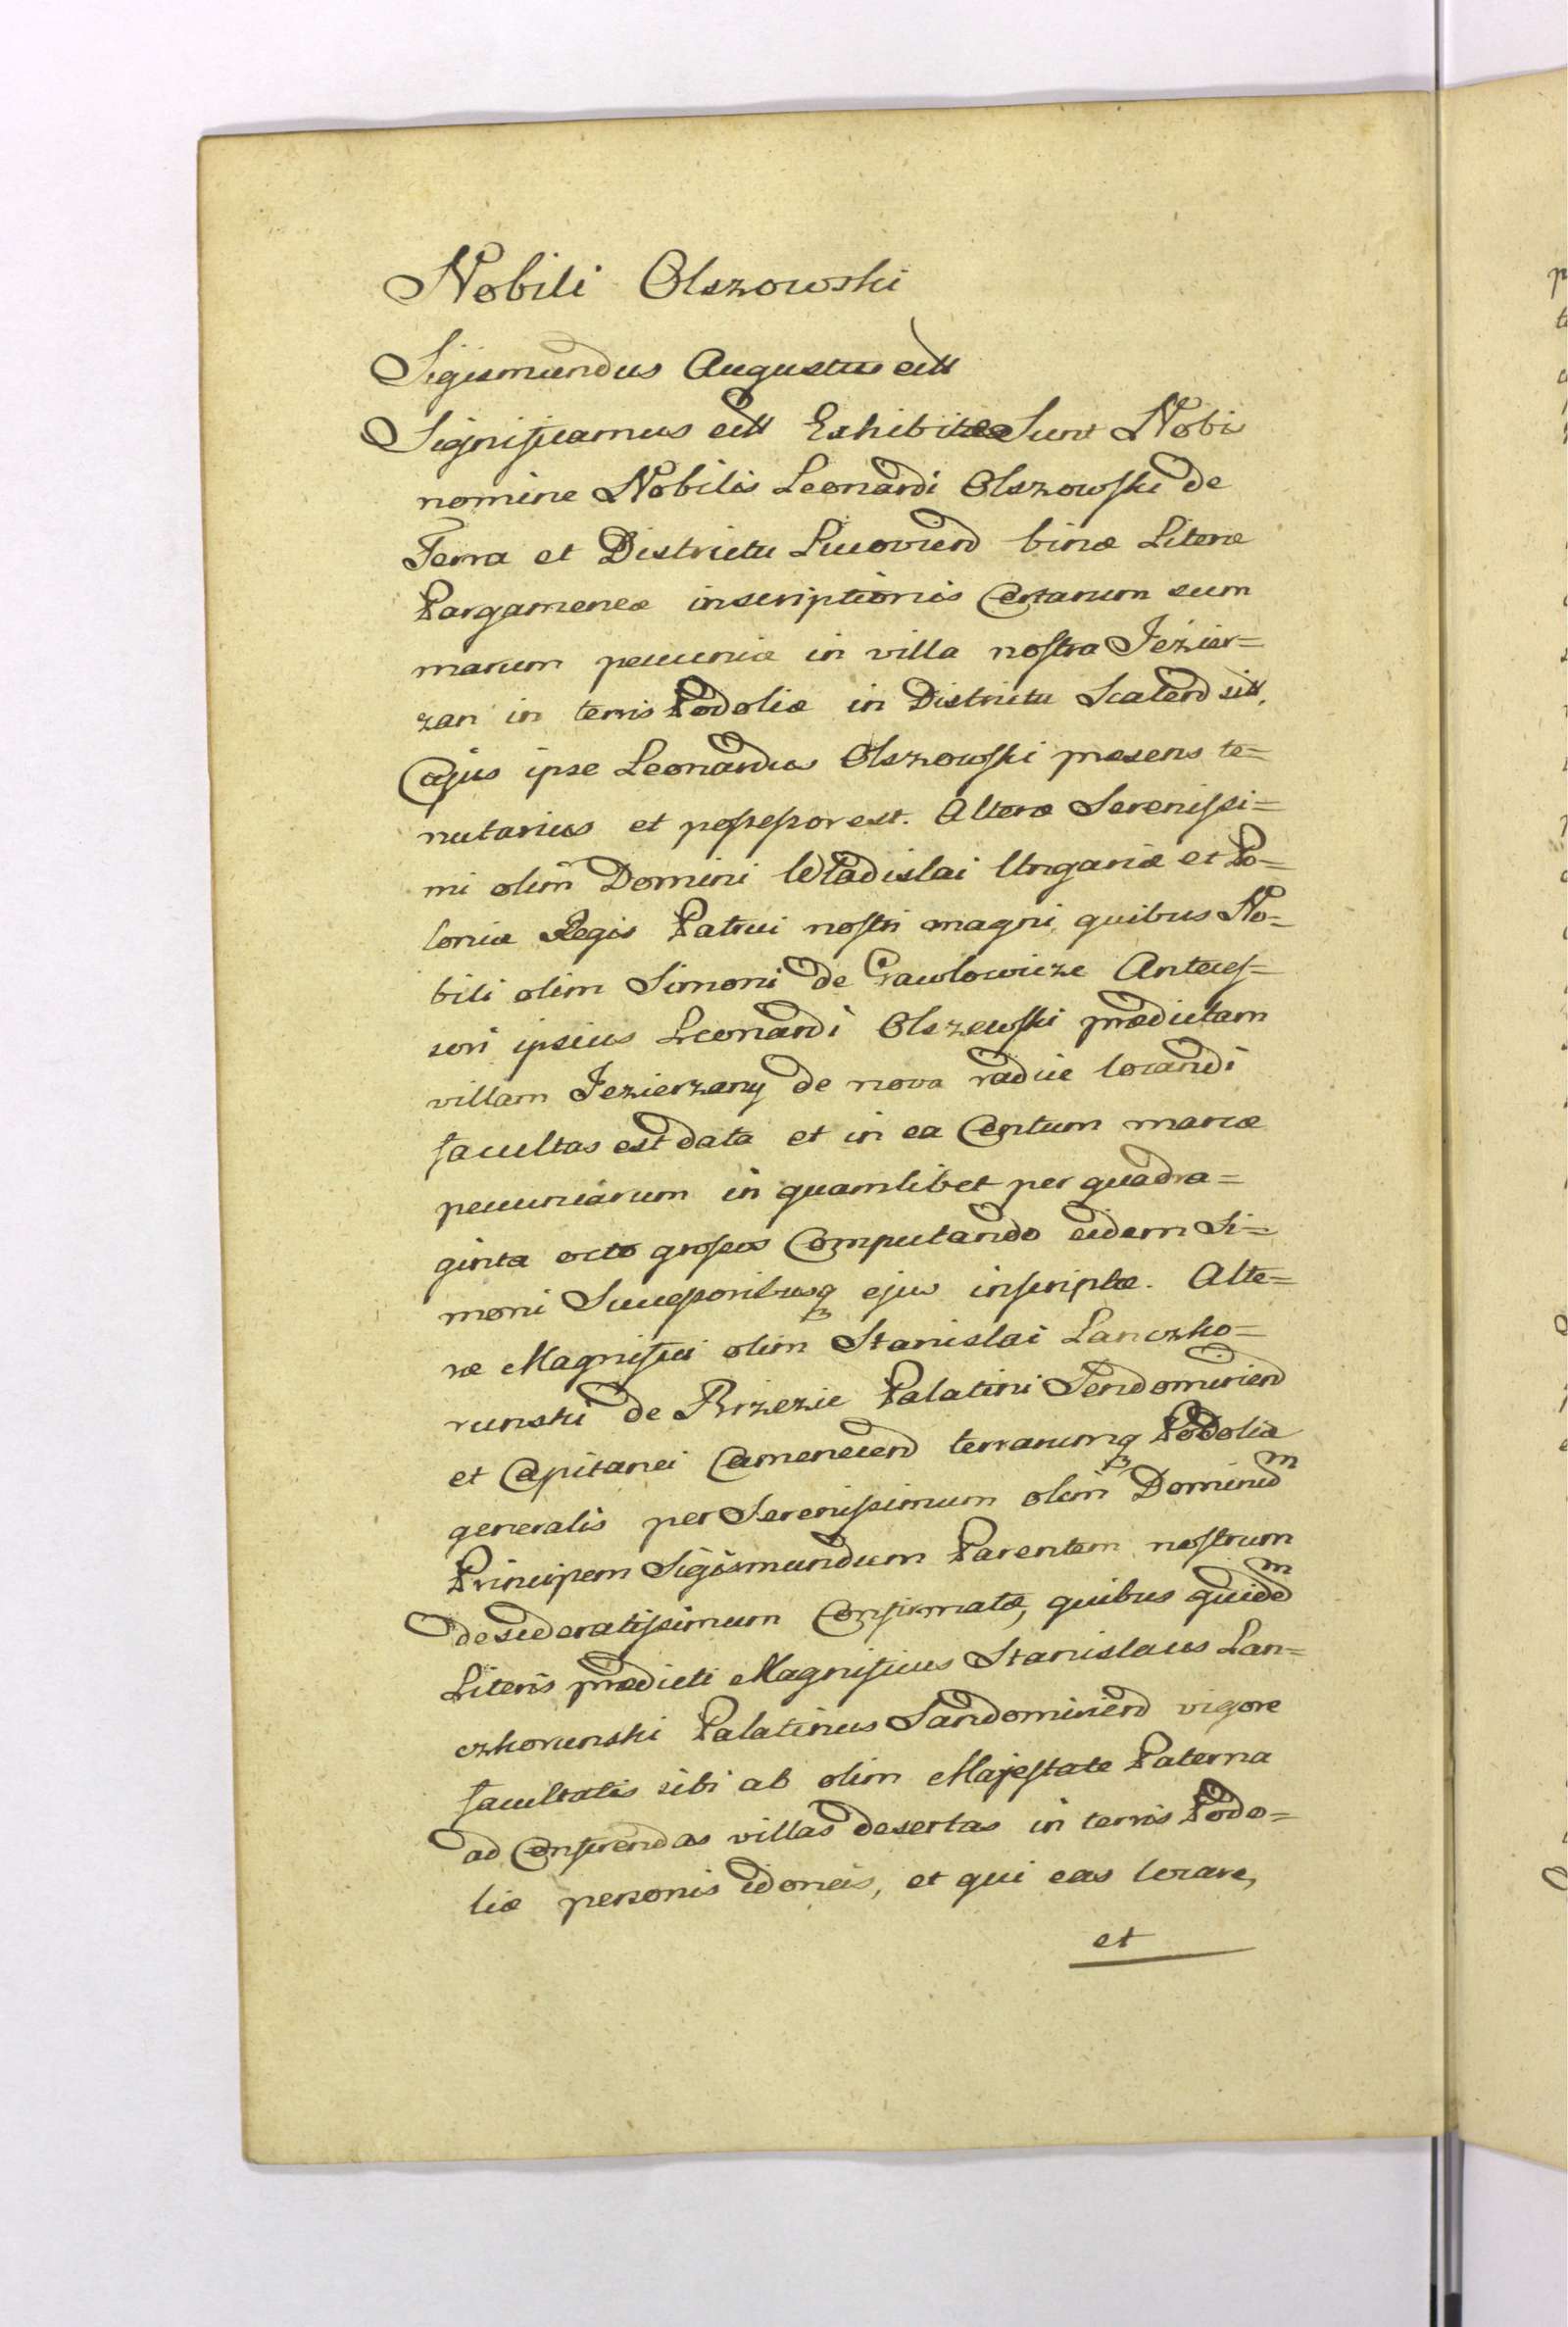 Nobili Olszowski
Sigismundus Augustus ett
Significamus ett Exhibitæ Sunt Nobis
nomine Nobilis Leonardi Olszowski de
Terra et Districtu Liwovien binæ Literæ
Pargameneæ inscriptionis Certarum sum
marum pecuniæ in villa nostra Jezier=
zan in terris Podoliæ in Districtu Scalen sitt,
Cujus ipse Leonardus Olszowski præsens te=
nutarius et possessor est. Alteræ Serenissi=
mi olim Domini Wladislai Ungariæ et Po=
loniæ Regis Patrui nostri magni, quibus No=
bili olim Simoni de Crawlowicze Anteces=
sori ipsius Leonardi Olszewski prædictam
villam Jezierzany de nova radice locandi
facultas est data et in ea Centum marcæ
pecuniarum in quamlibet per quadra=
ginta octo grossos Computando eidem Si=
moni Successoribusq ejus inscriptæ. Alte=
ræ Magnifici olim Stanislai Lanczko=
runski de Brzezie Palatini Sendomirien
et Capitanei Camenecen terrarumq Podoliæ
generalis per Serenissimum olim Dominum
Principem Sigismundum Parentem nostrum
desideratissimum Confirmatæ, quibus quidem
Literis prædicti Magnificus Stanislaus Lan=
czkorunski Palatinus Sandomirien vigore
facultatis sibi ab olim Majestate Paterna
ad Conferendas villas desertas in terris Podo=
liæ personis idoneis, et qui eas locare,
et